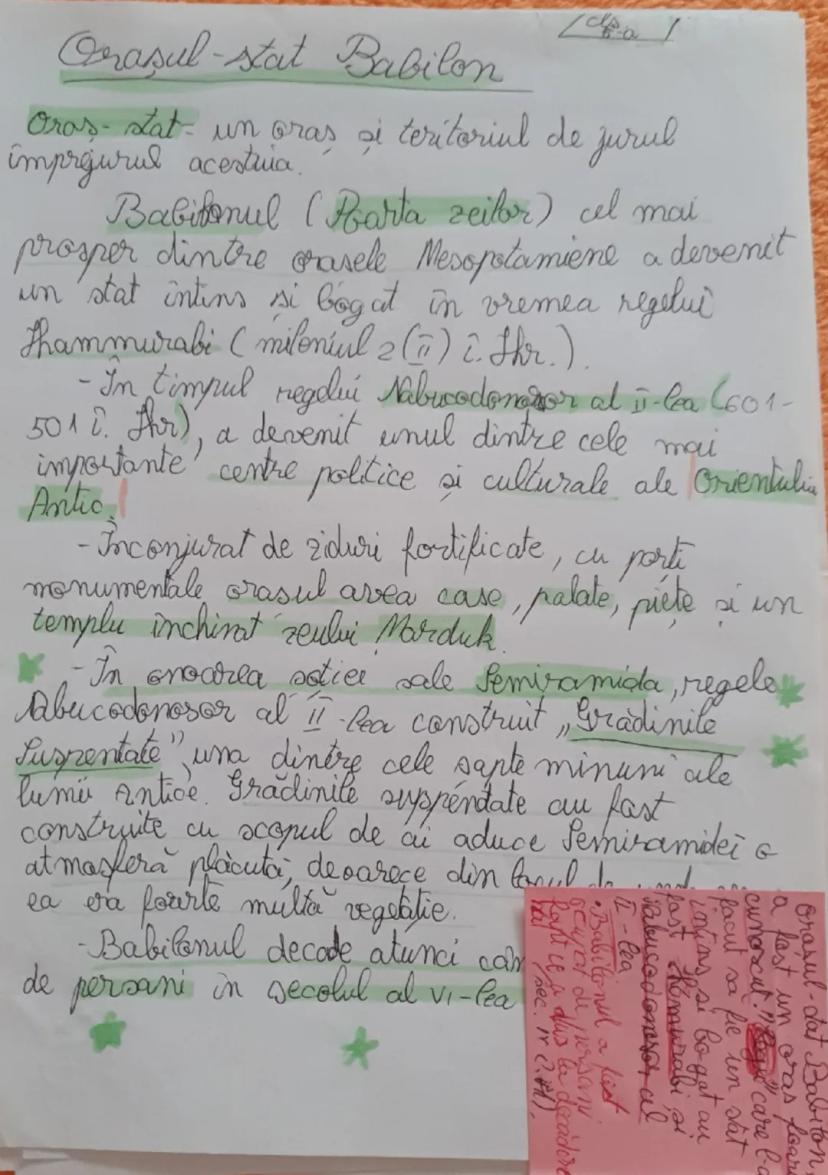 cls a 5-a
Orașul-stat Babilon
Oraș-stat- un oraș și teritoriul de jurul
împrejurul acestuia.
Babilonul (Poarta zeilor) cel mai
prosper dintre orasele Mesopotamiene a devenit
un stat intins și bogat în vremea regelui
Hammurabi (mileniul 2(II) î. Hr.).
-În timpul regelui Nabucodonosor al II-lea (601-
501 î. Hr), a devenit unul dintre cele mai
importante centre politice și culturale ale Orientului
Antic.
-Înconjurat de ziduri fortificate, cu porți
monumentale orasul avea case, palate, piețe și un
templu închinat zeului Marduk.
-În onoarea soției sale Semiramida, regele
Nabucodonosor al II-lea construit „Grădinile
Suspendate", una dintre cele sapte minuni ale
lumii Antice. Grădinile suspendate au fost
construite cu scopul de ai aduce Semiramidei o
atmosferă plăcută, deoarece din
ea era foarte multă vegetație.
-Babilonul decade atunci
de persani în secolul al VI-lea
orașul-stat Babilon
a fost un oras
cunoscut care l-
facut sa fie un stat
intins si bogat au
fost Hammurabi și
Nabucodonosor al
II-lea
•Babilonul a fost
ocupat de persani
fapt ce a dus la